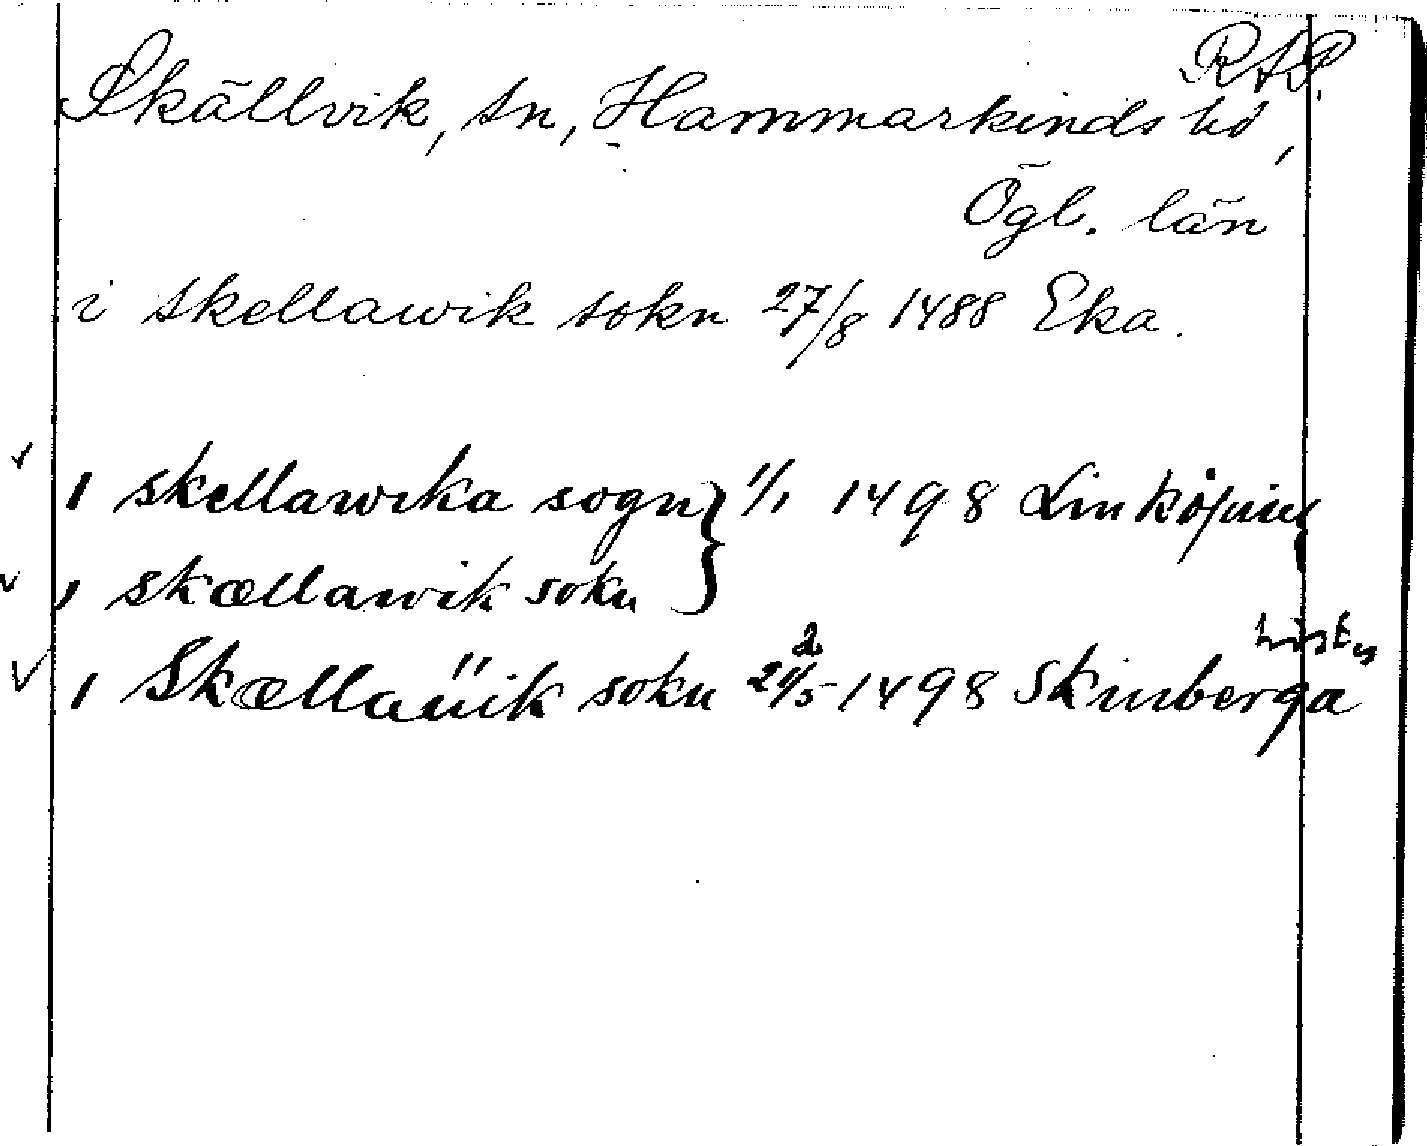 RAP.
Skällvik, sn, Hammarkinds hd,
Ögl. län
i skellawik sokn 27/8 1488 Eka.
i skellawika sogn } 1/1 1498 Linköping
i skællawik sokn
i Skællaűik sokn 1498 Skinberga